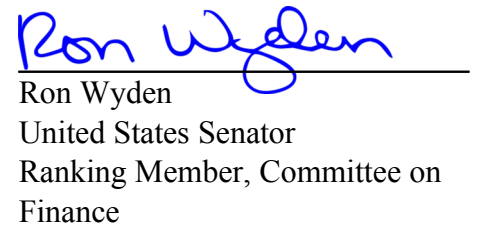 Ron Wyden
Ron Wyden
United States Senator
Ranking Member, Committee on
Finance